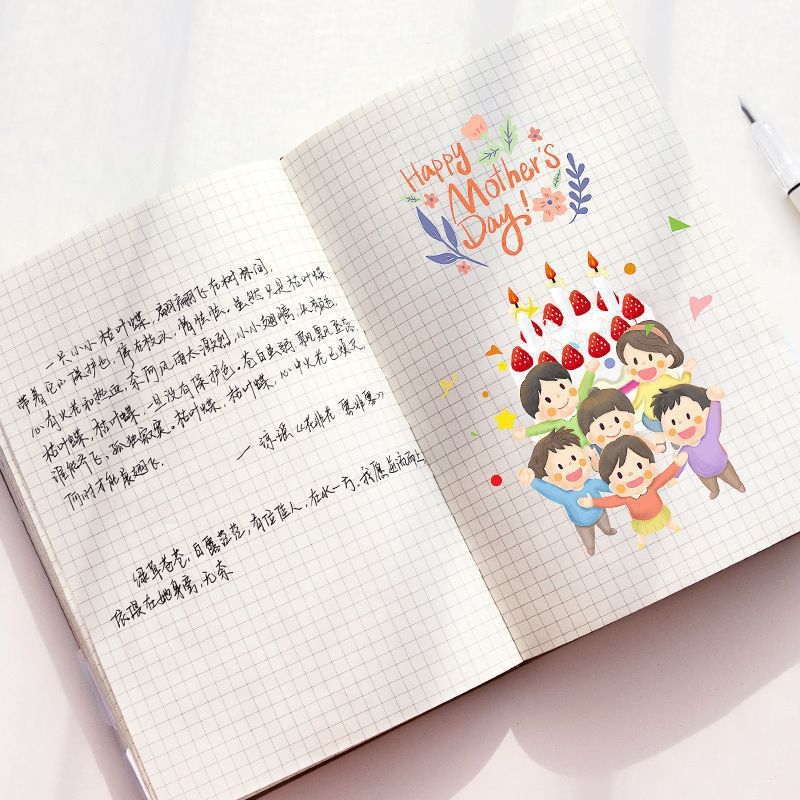 一只小小枯叶蝶，翩翩飞在树林间，
带着它的保护色，停在枝头，悄怯怯，虽然只是枯叶蝶，
心有火花和热血，奈何风雨太激烈，小小翅膀，
枯叶蝶，枯叶蝶，一旦没有保护色，苍白
谁能齐飞，孤独寂寞。枯叶蝶，枯叶蝶，心中火花已熄灭，
何时才能展翅飞.
— 琼瑶《花非花 雾非雾》
绿草苍苍，白露茫茫，有位佳人，在水一方，我愿逆流而上，
依偎在她身旁，无奈
Happy
Mother's
Day!